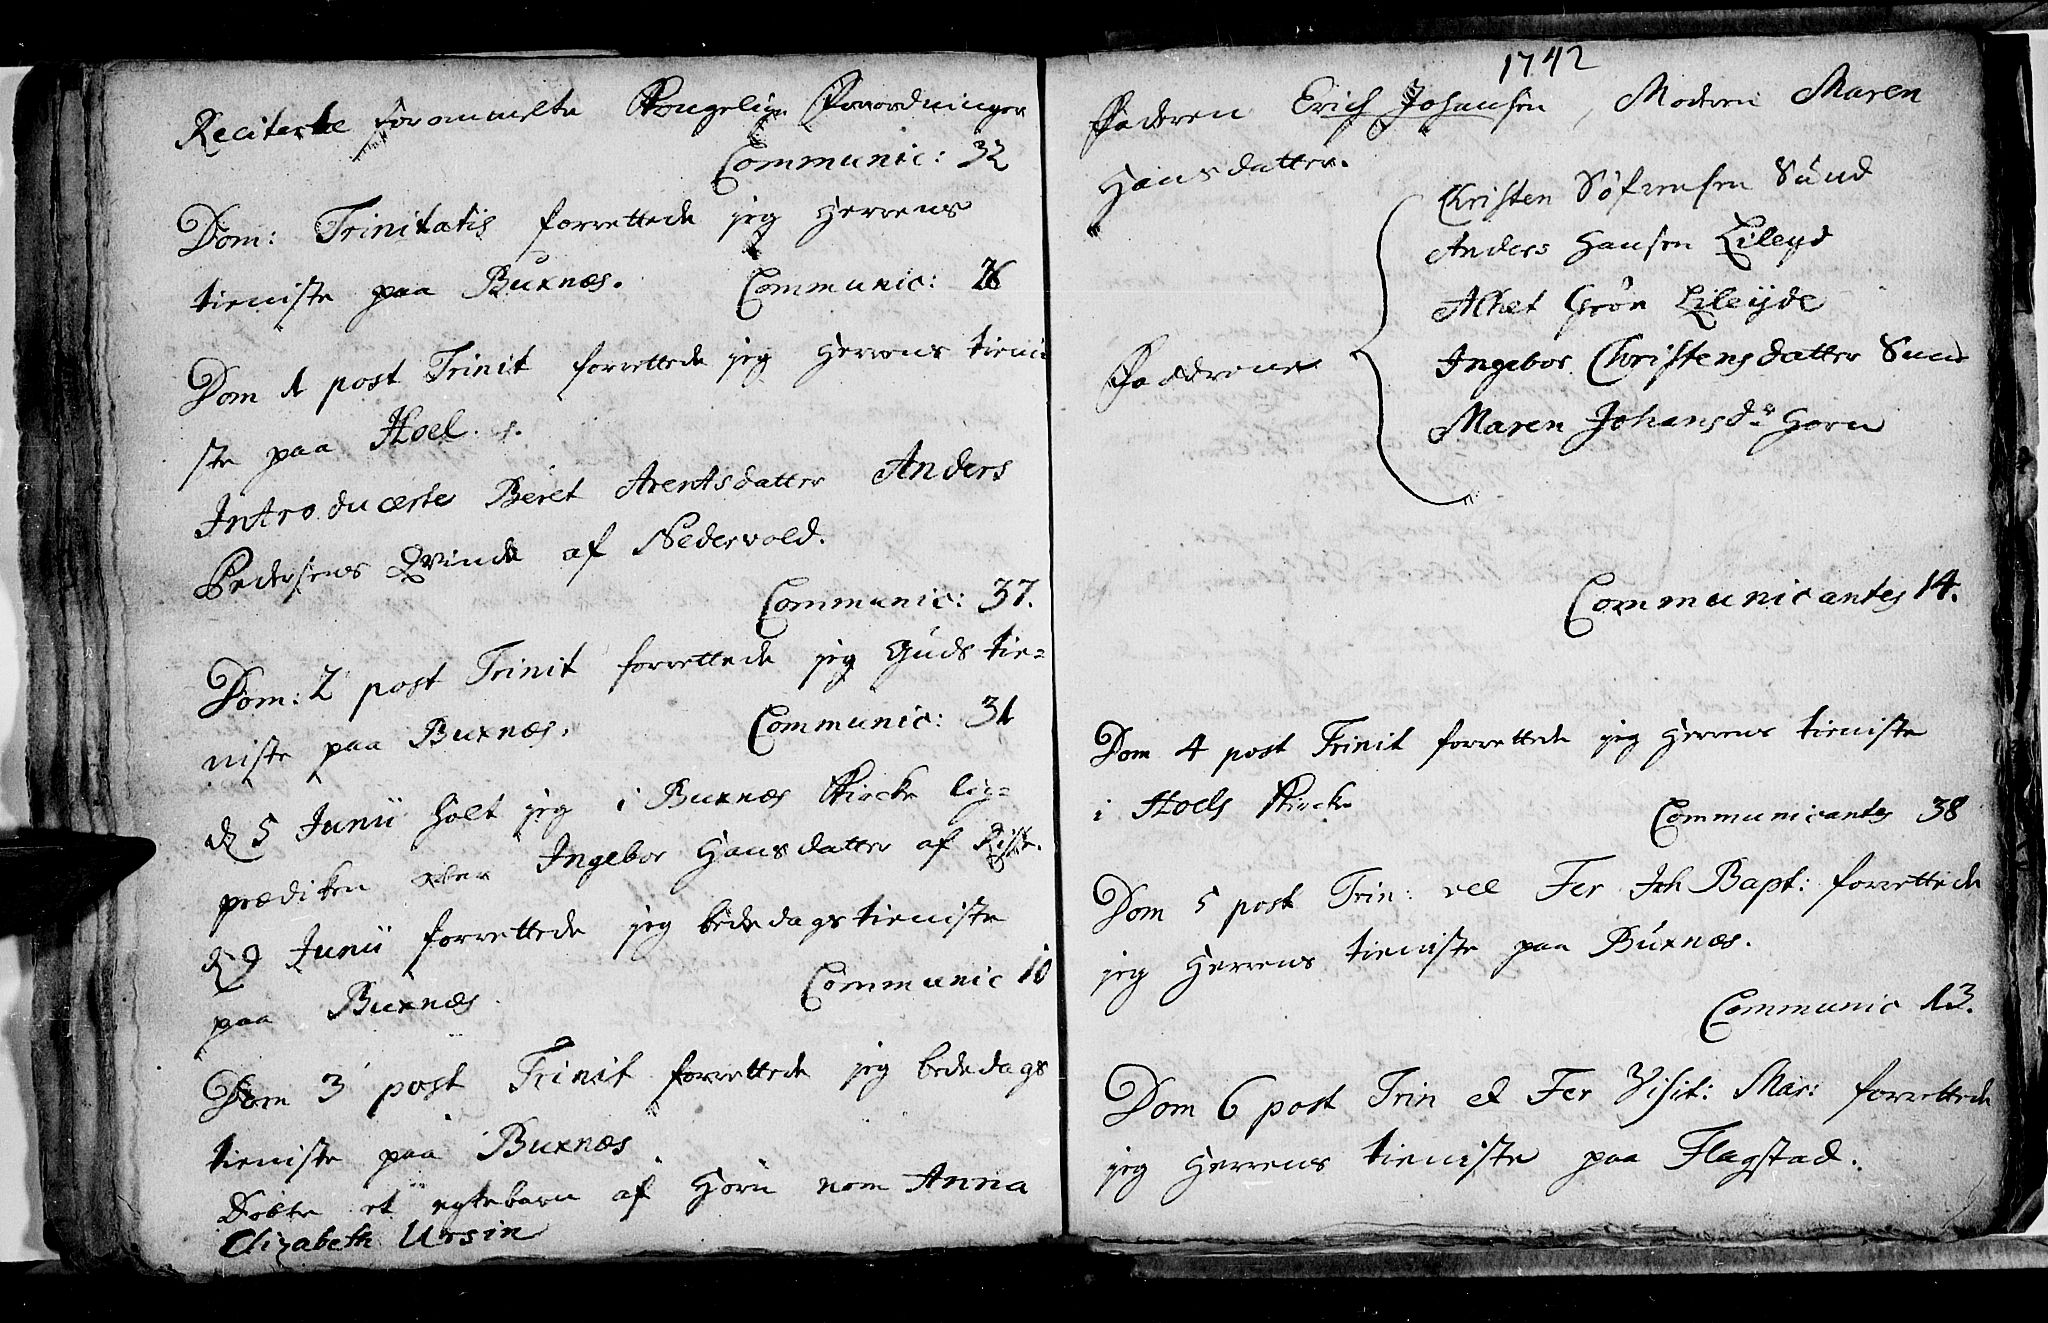 Reciterte forommelte Kongelige Forordninger
Communic: 32
Dom: Trinitatis forrettede jeg Herrens
tieniste paa Buxnæs. Communic: 26
Dom 1 post Trinit forrettede jeg Herrens tieni
ste paa Hoel.
Introducerte Beret Arentsdatter Anders
Pedersens Qvinde af Nedervold.
Communic: 37.
Dom: 2 post Trinit forrettede jeg Guds tie=
niste paa Buxnæs. Communic: 31
d 5 Junii holt jeg i Buxnæs Kircke lig=
prædiken over Ingebor Hansdatter af
d 9 Junii forrettede jeg bededags tieniste
paa Buxnæs. Communic 10
Dom 3 post Trinit forrettede jeg bededags
tieniste paa Buxnæs
Döbte et egtebarn af Horn nom Anna
Elizabeth Ursin
1742
Faderen Erich Johansen, Moderen Maren
Hansdatter.
Christen Söfrensen Sund
Anders Hansen Lileyd
Alhet Grön Lileyde
Fadderne Ingebor Christensdatter Sund
Maren Johansdr Horn
Communicantes 14.
Dom 4 post Trinit forrettede jeg Herrens tieniste
i Hoels Kircke Communicantes 38
Dom 5 post Trin: vel Fer Joh Bapt: forrettede
jeg Herrens tieniste paa Buxnæs.
Communic 13.
Dom 6 post Trin et Fer Visit: Mar: forrettede
jeg Herrens tieniste paa Flagstad.